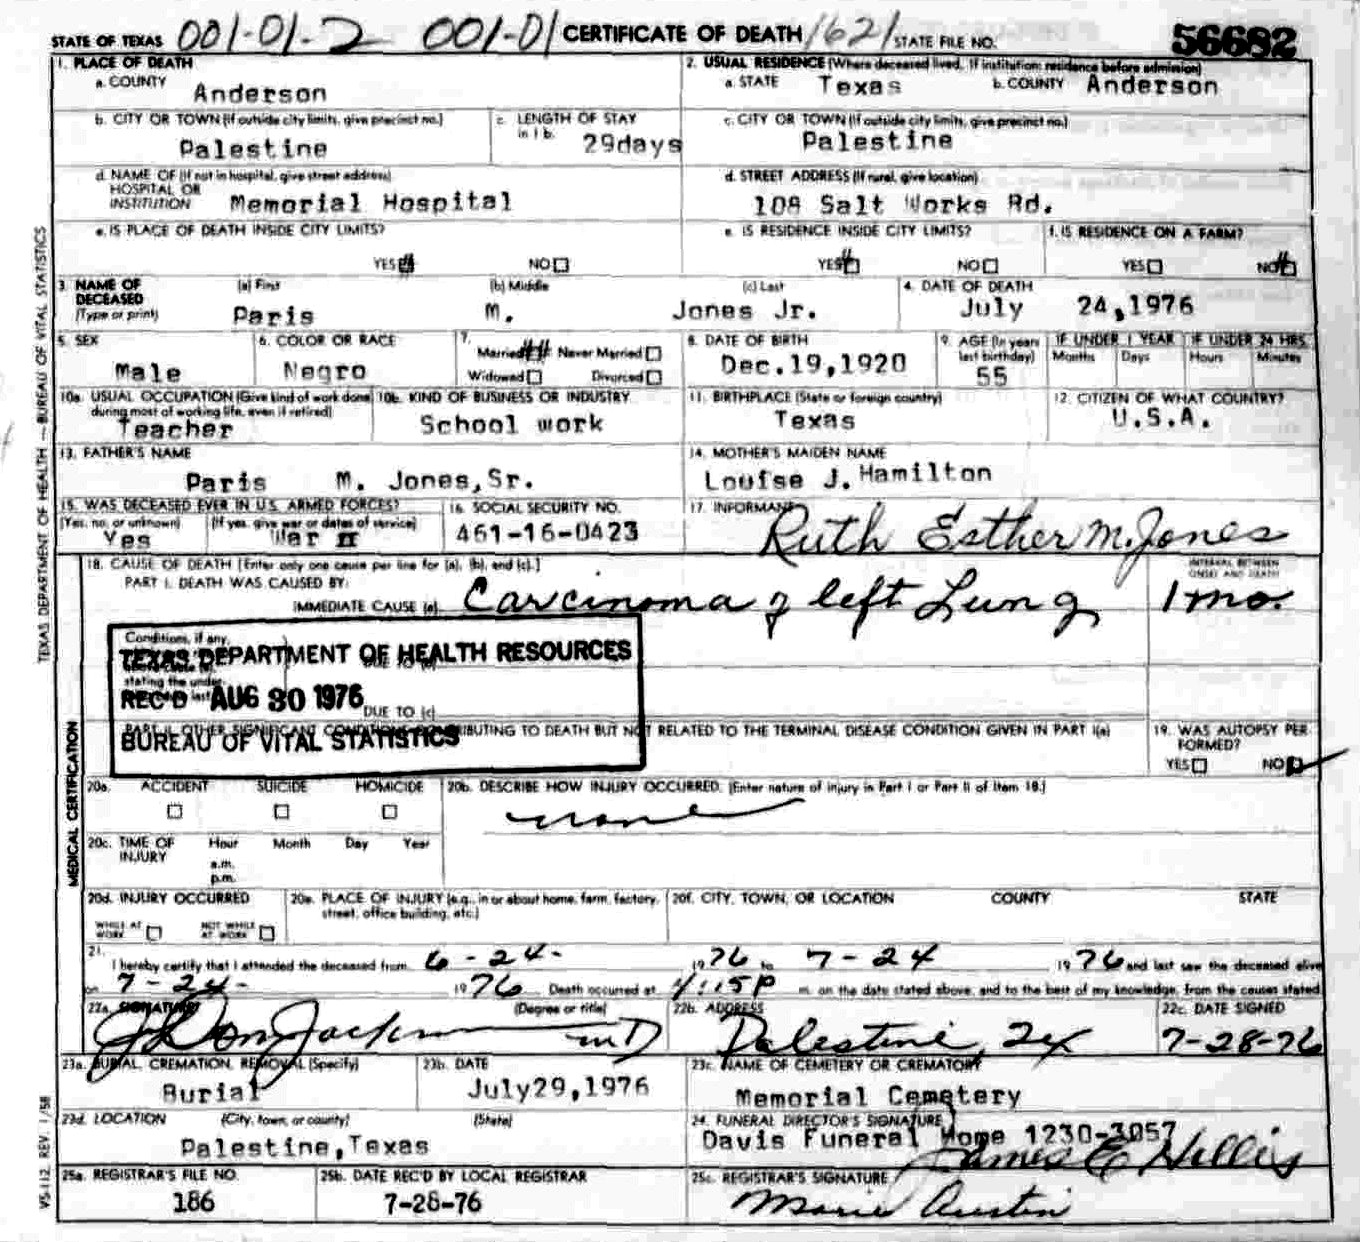 STATE OF TEXAS 001-01-2 001-01 CERTIFICATE OF DEATH 1621 STATE FILE NO. 56682
1. PLACE OF DEATH
a. COUNTY
Anderson
2. USUAL RESIDENCE (Where deceased lived. If institution: residence before admission)
a. STATE Texas b. COUNTY Anderson
b. CITY OR TOWN (If outside city limits, give precinct no.)
Palestine
c. LENGTH OF STAY in 1 b.
29days
c. CITY OR TOWN (If outside city limits, give precinct no.)
Palestine
d. NAME OF (If not in hospital, give street address)
HOSPITAL OR
INSTITUTION Memorial Hospital
d. STREET ADDRESS (If rural, give location)
108 Salt Works Rd.
e. IS PLACE OF DEATH INSIDE CITY LIMITS?
YES NO
e. IS RESIDENCE INSIDE CITY LIMITS?
YES NO
f. IS RESIDENCE ON A FARM?
YES NO
3. NAME OF DECEASED (Type or print)
(a) First (b) Middle (c) Last
Paris M. Jones Jr.
4. DATE OF DEATH
July 24,1976
5. SEX
Male
6. COLOR OR RACE
Negro
7.
Married Never Married
Widowed Divorced
8. DATE OF BIRTH
Dec.19,1920
9. AGE (In years last birthday)
55
IF UNDER 1 YEAR IF UNDER 24 HRS.
Months Days Hours Minutes
10a. USUAL OCCUPATION (Give kind of work done
during most of working life, even if retired)
Teacher
10b. KIND OF BUSINESS OR INDUSTRY
School work
11. BIRTHPLACE (State or foreign country)
Texas
12. CITIZEN OF WHAT COUNTRY?
U.S.A.
13. FATHER'S NAME
Paris M. Jones,Sr.
14. MOTHER'S MAIDEN NAME
Louise J. Hamilton
15. WAS DECEASED EVER IN U.S. ARMED FORCES?
(Yes, no, or unknown) (If yes, give war or dates of service)
Yes War II
16. SOCIAL SECURITY NO.
461-16-0423
17. INFORMANT
Ruth Esther M. Jones
18. CAUSE OF DEATH [Enter only one cause per line for (a), (b), and (c).]
PART I. DEATH WAS CAUSED BY:
IMMEDIATE CAUSE (a) Carcinoma of left Lung
INTERVAL BETWEEN
ONSET AND DEATH
1 mo.
Conditions, if any,
stating the under-
DUE TO (c)
TEXAS DEPARTMENT OF HEALTH RESOURCES
REC'D AUG 30 1976
BUREAU OF VITAL STATISTICS
PART II. OTHER SIGNIFICANT CONDITIONS CONTRIBUTING TO DEATH BUT NOT RELATED TO THE TERMINAL DISEASE CONDITION GIVEN IN PART I(a)
19. WAS AUTOPSY PERFORMED?
YES NO
20a. ACCIDENT SUICIDE HOMICIDE
20b. DESCRIBE HOW INJURY OCCURRED. (Enter nature of injury in Part I or Part II of Item 18.)
none
20c. TIME OF INJURY
Hour Month Day Year
a.m.
p.m.
20d. INJURY OCCURRED
WHILE AT WORK NOT WHILE AT WORK
20e. PLACE OF INJURY (e.g., in or about home, farm, factory,
street, office building, etc.)
20f. CITY, TOWN, OR LOCATION COUNTY STATE
21.
I hereby certify that I attended the deceased from 6-24- 1976 to 7-24 1976 and last saw the deceased alive
on 7-24- 1976 Death occurred at 1:15P m. on the date stated above, and to the best of my knowledge, from the causes stated.
22a. SIGNATURE (Degree or title)
J Don Jackson MD
22b. ADDRESS
Palestine, Tex
22c. DATE SIGNED
7-28-76
23a. BURIAL, CREMATION, REMOVAL (Specify)
Burial
23b. DATE
July29,1976
23c. NAME OF CEMETERY OR CREMATORY
Memorial Cemetery
23d. LOCATION (City, town, or county) (State)
Palestine,Texas
24. FUNERAL DIRECTOR'S SIGNATURE
Davis Funeral Home 1230-3057
James E Hollis
25a. REGISTRAR'S FILE NO.
186
25b. DATE REC'D BY LOCAL REGISTRAR
7-28-76
25c. REGISTRAR'S SIGNATURE
Marie Austin
TEXAS DEPARTMENT OF HEALTH — BUREAU OF VITAL STATISTICS
MEDICAL CERTIFICATION
VS-112 REV. 1/58